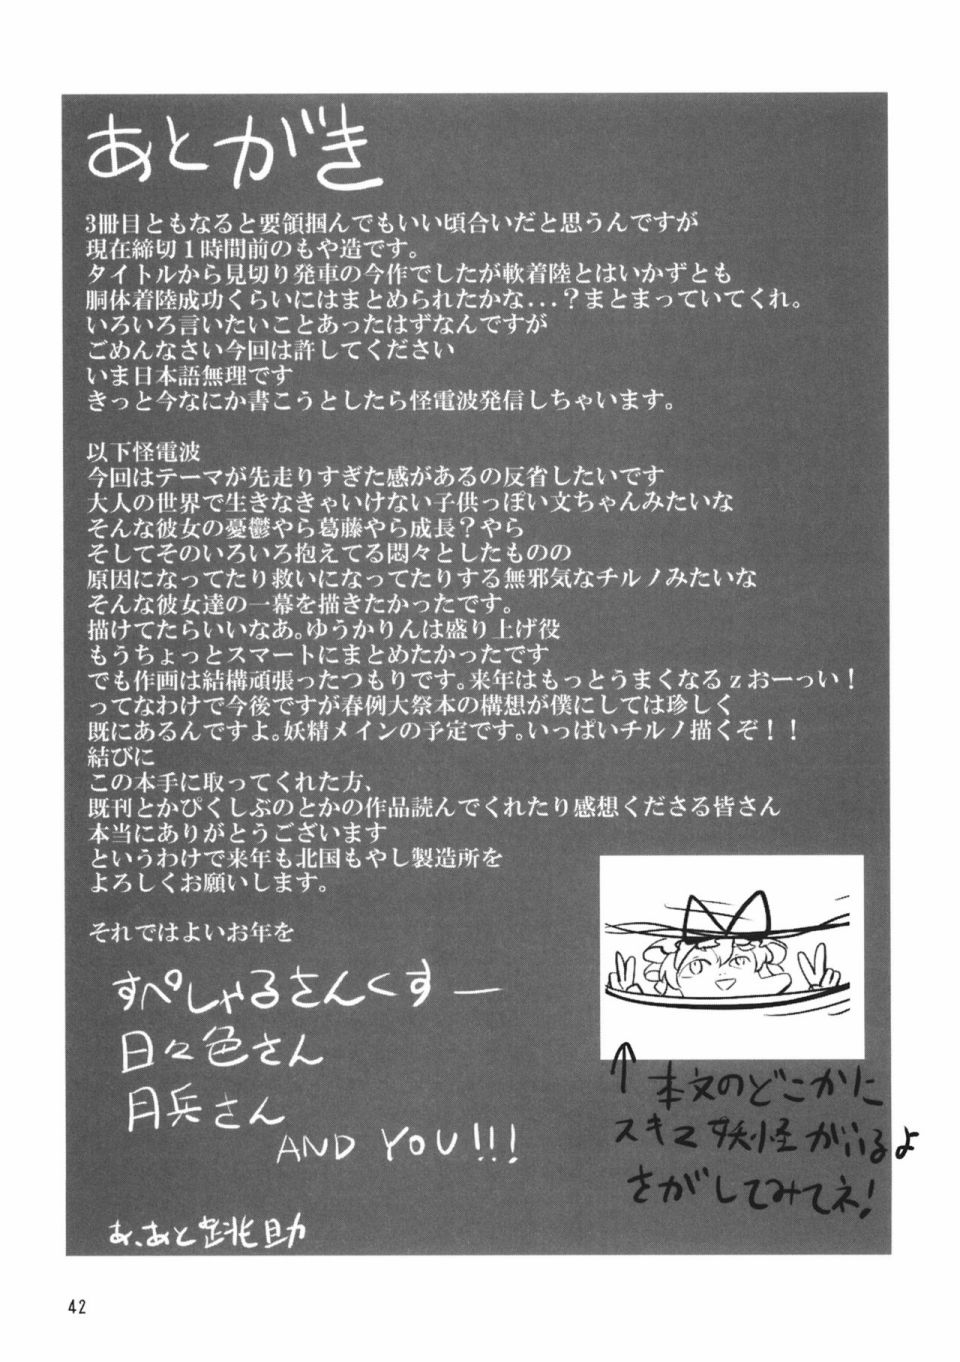 あとがき
3冊目ともなると要領掴んでもいい頃合いだと思うんですが
現在締切１時間前のもや造です。
タイトルから見切り発車の今作でしたが軟着陸とはいかずとも
胴体着陸成功くらいにはまとめられたかな...？まとまっていてくれ。
いろいろ言いたいことあったはずなんですが
ごめんなさい今回は許してください
いま日本語無理です
きっと今なにか書こうとしたら怪電波発信しちゃいます。
以下怪電波
今回はテーマが先走りすぎた感があるの反省したいです
大人の世界で生きなきゃいけない子供っぽい文ちゃんみたいな
そんな彼女の憂鬱やら葛藤やら成長？やら
そしてそのいろいろ抱えてる悶々としたものの
原因になってたり救いになってたりする無邪気なチルノみたいな
そんな彼女達の一幕を描きたかったです。
描けてたらいいなあ。ゆうかりんは盛り上げ役
もうちょっとスマートにまとめたかったです
でも作画は結構頑張ったつもりです。来年はもっとうまくなるｚおーっい！
ってなわけで今後ですが春例大祭本の構想が僕にしては珍しく
既にあるんですよ。妖精メインの予定です。いっぱいチルノ描くぞ！！
結びに
この本手に取ってくれた方、
既刊とかぴくしぶのとかの作品読んでくれたり感想くださる皆さん
本当にありがとうございます
というわけで来年も北国もやし製造所を
よろしくお願いします。
それではよいお年を
すぺしゃるさんくすー
日々色さん
月兵さん
AND YOU!!!
あ、あと
↑本文のどこかに
スキマ妖怪がいるよ
さがしてみてネ!
42